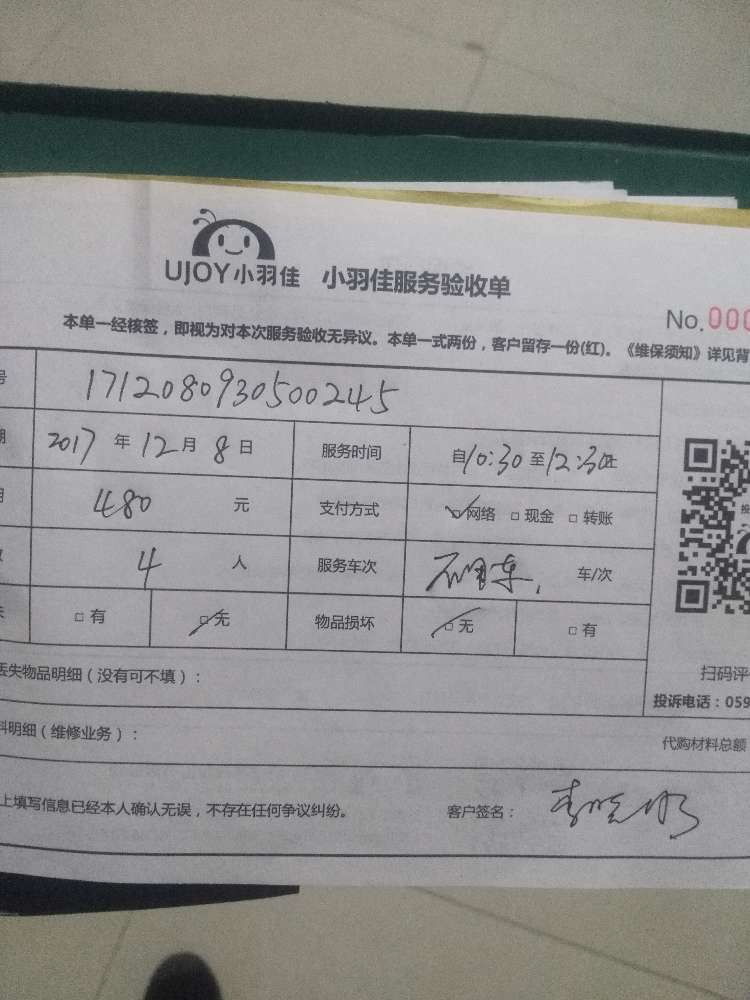 UJOY小羽佳 小羽佳服务验收单
No.000
本单一经核签，即视为对本次服务验收无异议。本单一式两份，客户留存一份(红)。《维保须知》详见背
号 1712080930500245
期 2017 年 12 月 8 日 服务时间 自 10:30 至 12:30 止
480 元 支付方式 网络 现金 转账
4 人 服务车次 不用车, 车/次
有 无 物品损坏 无 有
扫码评
丢失物品明细（没有可不填）：
投诉电话：059
料明细（维修业务）：
代购材料总额
上填写信息已经本人确认无误，不存在任何争议纠纷。 客户签名：